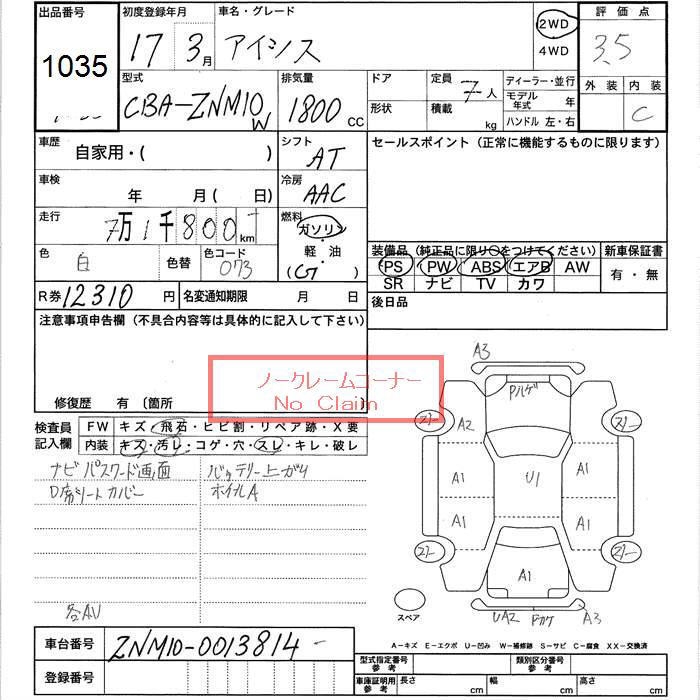 出品番号 初度登録年月 車名・グレード 2WD 評価点
1035 17年 3月 アイシス 4WD 3.5
型式 排気量 ドア 定員 7人 ディーラー・並行 外装 内装
CBA-ZNM10W 1800cc 形状 積載 kg モデル年式 年 C
ハンドル 左・右
車歴 自家用・( ) シフト AT セールスポイント (正常に機能するものに限ります)
車検 年 月(日) 冷房 AAC
走行 7万1千800km 燃料 ガソリン
軽・油
色 白 色替 色コード 073
装備品 (純正品に限り○をつけてください) 新車保証書
PS PW ABS エアB AW 有・無
SR ナビ TV カワ
R券 12310円 名変通知期限 月 日 後日品
注意事項申告欄 (不具合内容等は具体的に記入して下さい)
ノークレームコーナー
No Claim
修復歴 有 〔箇所
検査員記入欄 FW キズ・飛石・ヒビ割・リペア跡・X要
内装 キズ・汚レ・コゲ・穴・スレ・キレ・破レ
ナビパスワード画面 バッテリー上がり
D席シートカバー ホイルA
A3
Pハゲ
A2
A1 U1 A1
A1 A1
A1
スペア UA2 Fカケ A3
車台番号 ZNM10-0013814
登録番号
A-キズ E-エクボ U-凹み W-補修跡 S-サビ C-腐食 XX-交換済
型式指定番号 参考 類別区分番号 参考
車庫証明用 参考 長さ cm 幅 cm 高さ cm